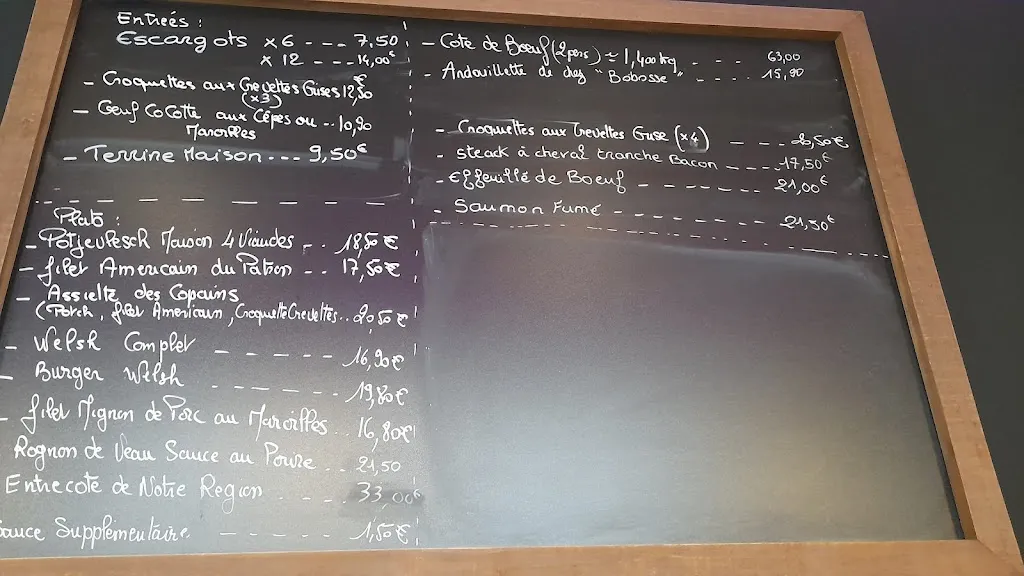 Entrées :
Escargots x6 --- 7,50
x 12 ---- 14,00€
- Croquettes aux Crevettes Grises 12,50
(x3)
- Oeuf Cocotte aux Cèpes ou -- 10,90
Maroilles
- Terrine Maison --- 9,50€
Plats :
- Potjevlesch Maison 4 Viandes -- 18,50€
- filet Americain du Patron -- 17,50€
- Assiette des Copains
(Potch, filet Americain, Croquette Crevettes.. 20,50€
- Welsh Complet ---- 16,90€
- Burger Welsh ---- 19,80€
- filet Mignon de Porc au Maroilles .. 16,80€
Rognon de Veau Sauce au Poivre .. 21,50
Entrecote de Notre Region ---- 33,00€
Sauce Supplémentaire ---- 1,50€
- Cote de Boeuf (2 pers) ≈ 1,400kg ---- 63,00
- Andouillette de chez "Bobosse" ---- 15,90
- Croquettes aux Crevettes Grise (x4) --- 20,50€
- steack à cheval tranche Bacon ---- 17,50€
- Effeuillé de Boeuf ---- 21,00€
- Saumon Fumé ---- 21,50€